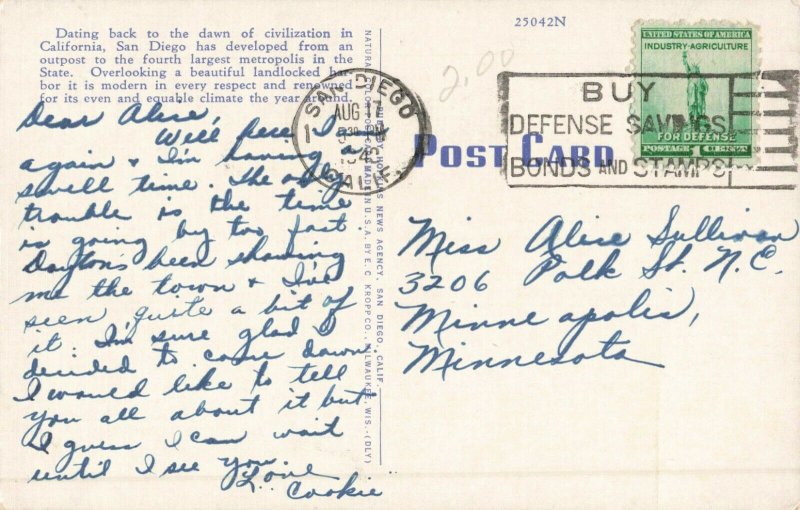 Dating back to the dawn of civilization in
California, San Diego has developed from an
outpost to the fourth largest metropolis in the
State. Overlooking a beautiful landlocked har-
bor it is modern in every respect and renowned
for its even and equable climate the year around.
Dear Alice,
Well here I am
again & I'm having a
swell time. The only
trouble is the time
is going by too fast.
Dayton's been showing
me the town & I've
seen quite a bit of
it. I'm sure glad I
decided to come down.
I would like to tell
you all about it but
I guess I can wait
until I see you.
Love
Cookie
NATURAL COLOR POST CARD MADE IN U.S.A. BY E. C. KROPP CO., MILWAUKEE, WIS. (DLY)
NEWS AGENCY, SAN DIEGO, CALIF.
25042N
2.00
SAN DIEGO
AUG
CALIF.
1
POST CARD
BUY
DEFENSE SAVINGS
BONDS AND STAMPS
UNITED STATES OF AMERICA
INDUSTRY-AGRICULTURE
FOR DEFENSE
POSTAGE 1 CENT
Miss Alice Sullivan
3206 Polk St. N.E.
Minneapolis,
Minnesota